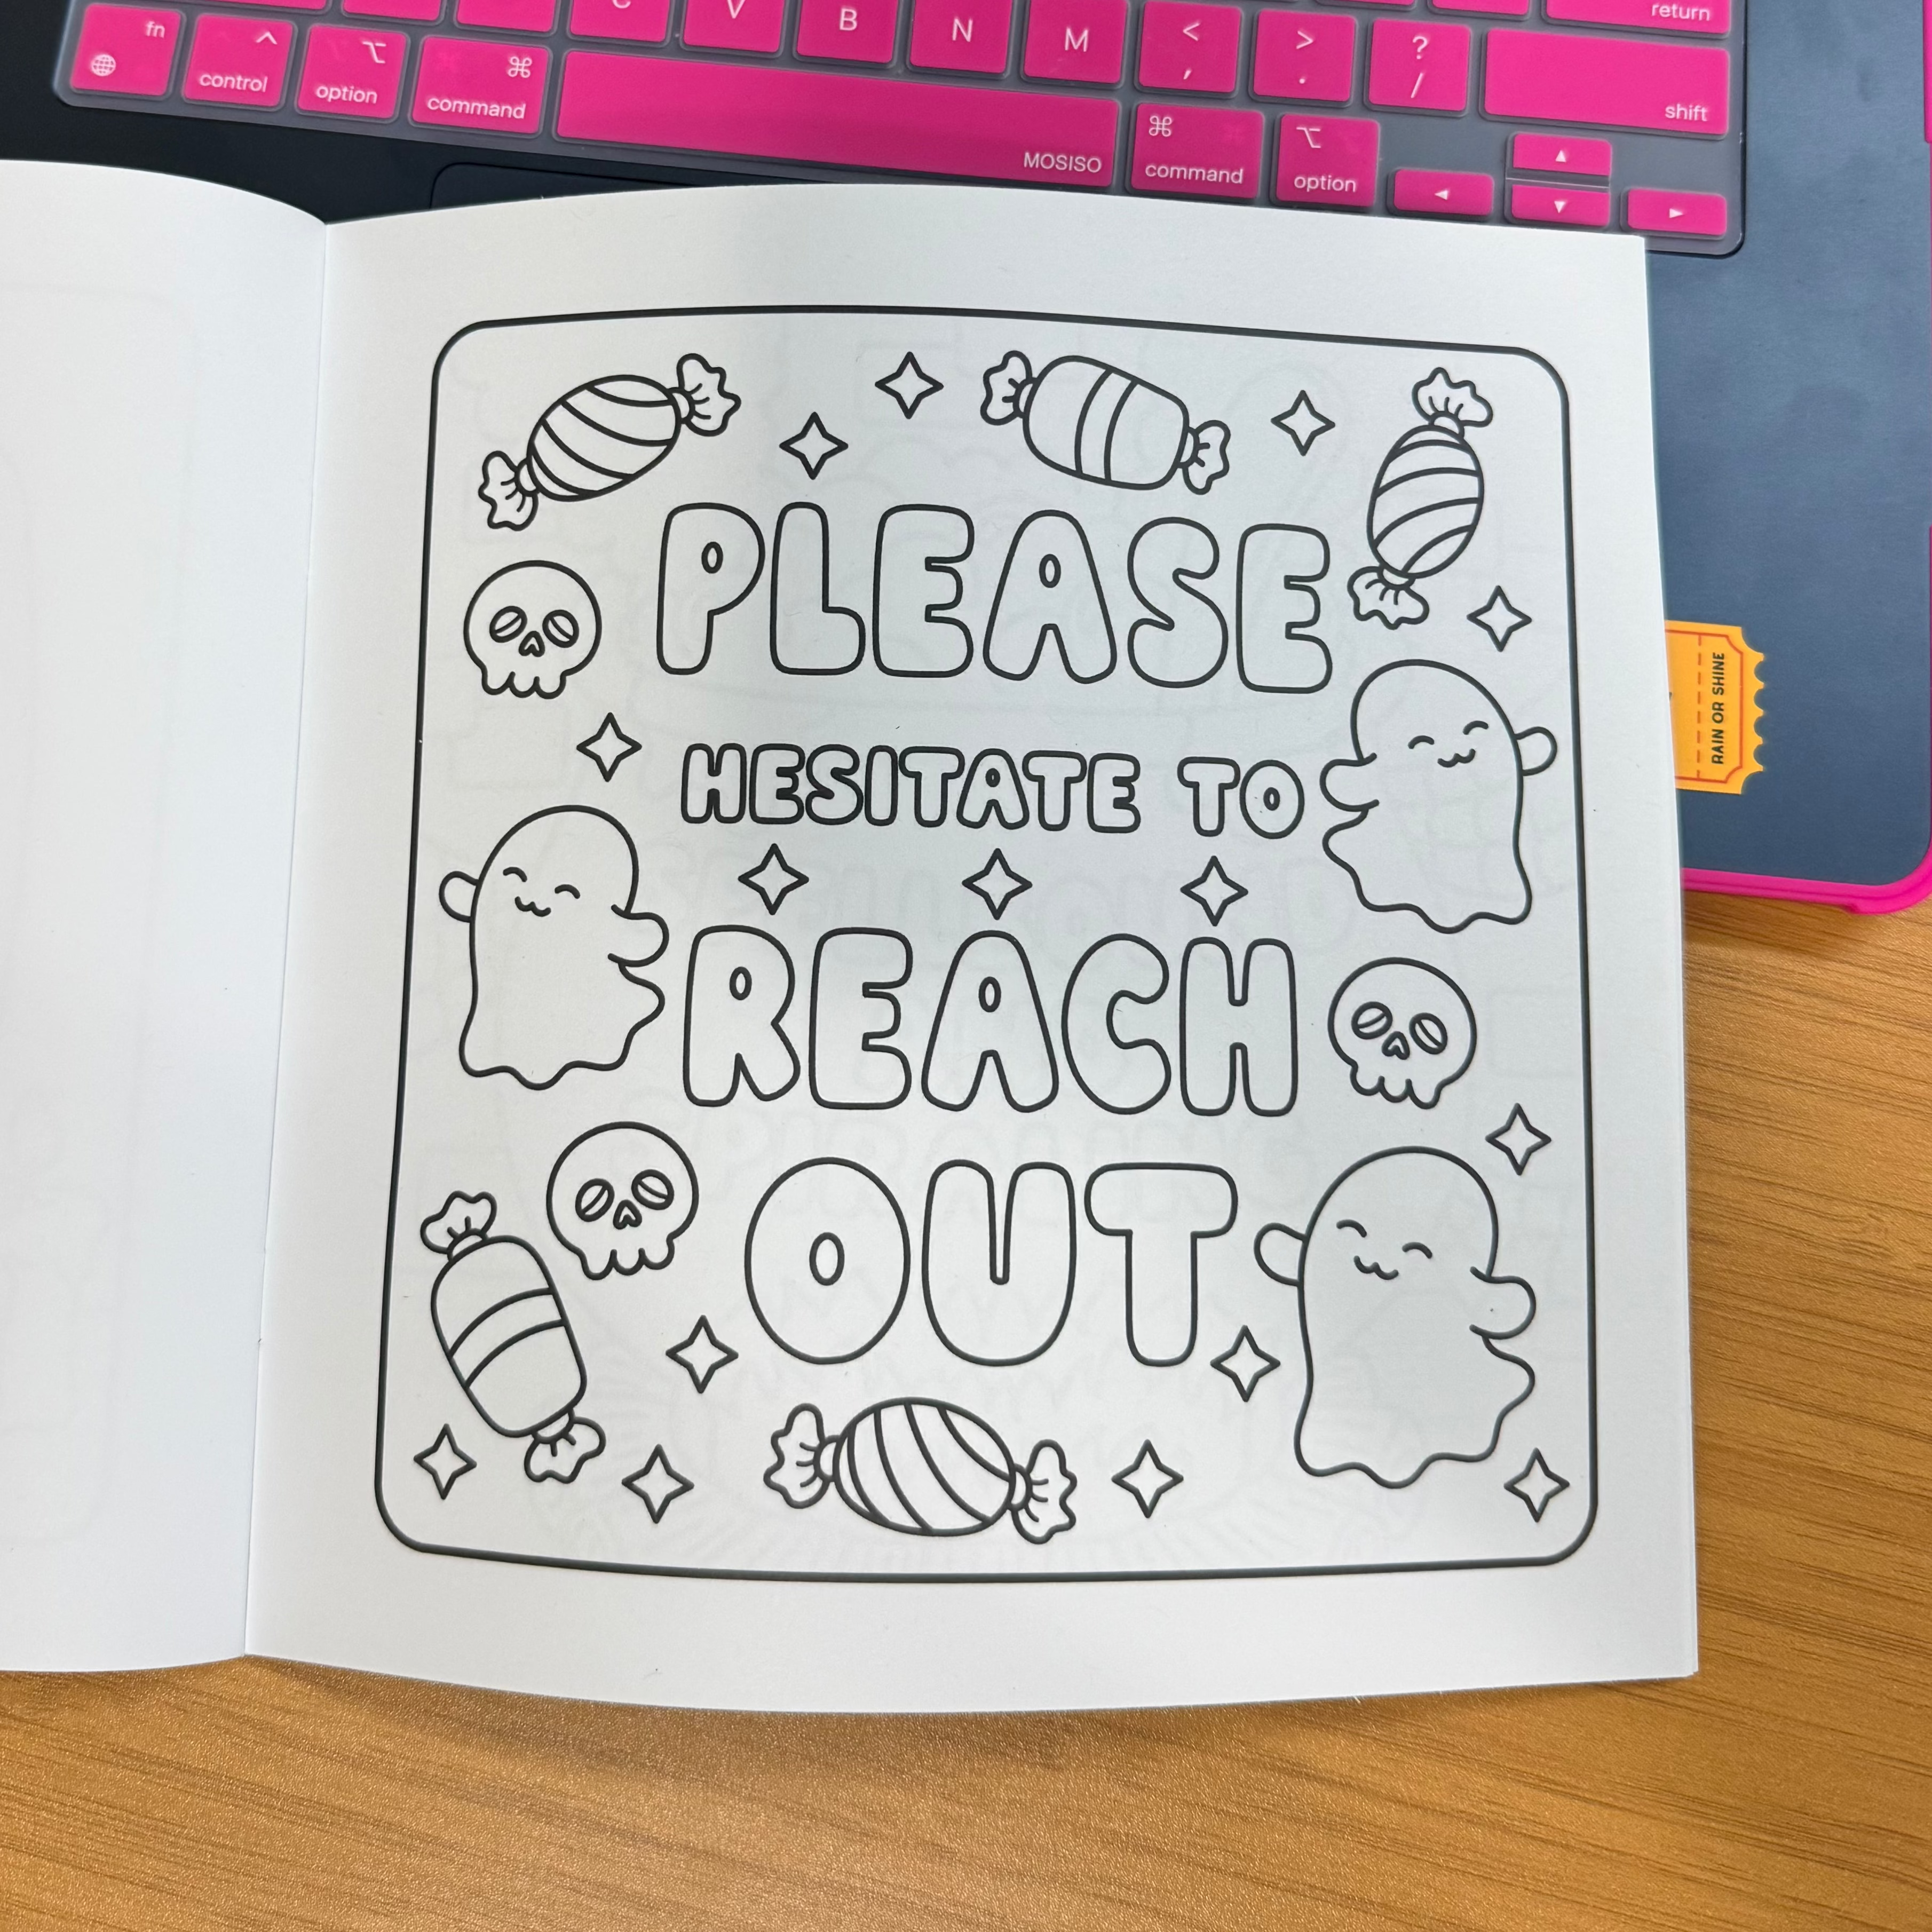 C V B N M < > ? return
fn control option command , . / shift
MOSISO command option
PLEASE
HESITATE TO
REACH
OUT
RAIN OR SHINE